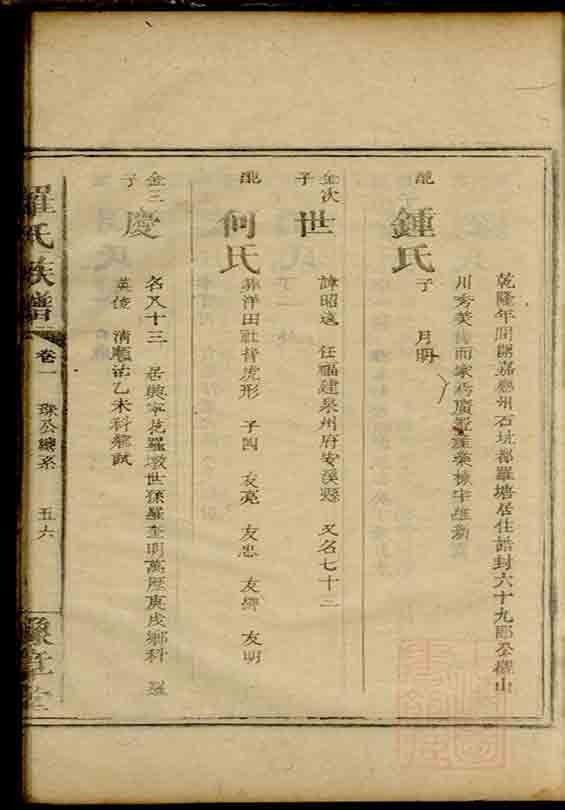 乾隆年間開嘉應州石坑都羅塘居住誥封六十九郎公攬山
川秀英
而家
廣置產業棟宇維新
配
鍾氏
子 月明
金次
子
世
諱昭遠 任福建泉州府安溪縣 又名七十二
配
何氏
葬洋田社背虎形 子四 友亮 友忠 友鄉 友明
金三
子
慶
名又十三 居興寧花羅墩世孫羅奎明萬歷庚戌鄉科 羅
英俊 清順治乙未科鄉試
羅氏族譜
卷一 珠公總系 五六
豫章堂